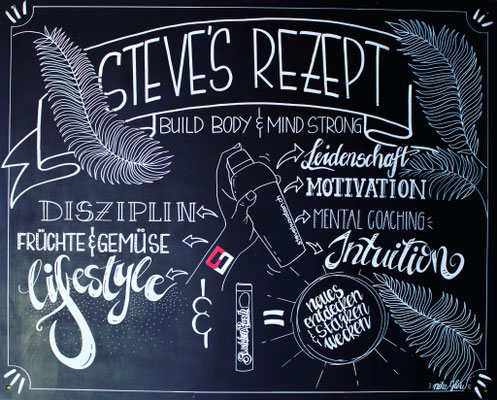 STEVE'S REZEPT
BUILD BODY & MIND STRONG
Leidenschaft
MOTIVATION
DISZIPLIN
MENTAL COACHING
FRÜCHTE & GEMÜSE
Intuition
lifestyle
&
=
neues
entdecken
& Stärken
wecken